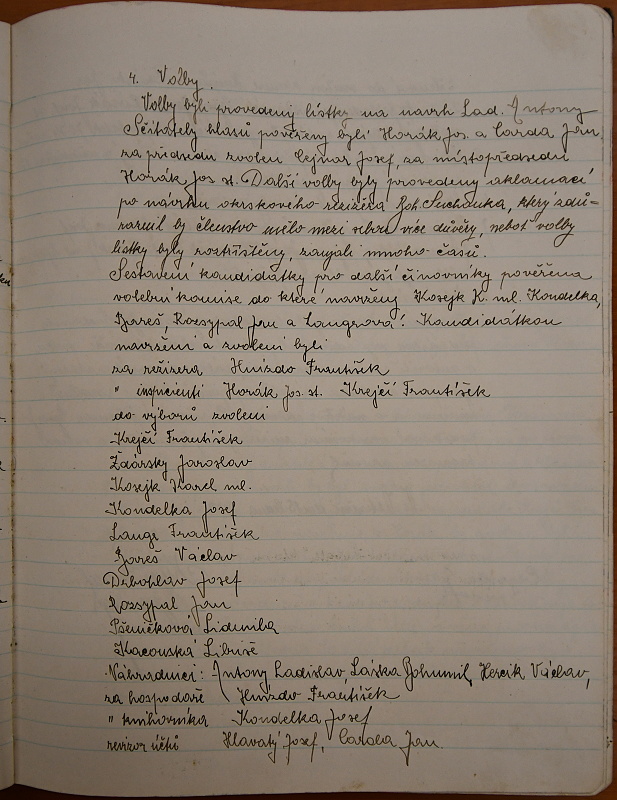 4. Volby.
Volby byli provedeny lístky na navrh Lad. Antony
Sčítately hlasů pověřeny byli Horák Jos. a Čarda Jan.
za předsedu zvolen Cejnar Josef, za místopředsedu
Horák Jos st. Další volby byly provedeny aklamací
po návrhu okrskového režiséra Boh. Suchánka, který zdů-
raznil by členstvo mělo mezi sebou více důvěry, neboť volby
lístky byly roztříštěny, zaujali mnoho časů.
Sestavení kandidátky pro další činovníky pověřena
volební komise do které navrženy Kosejk K. ml. Kondelka,
Bareš, Rozsypal Jan a Langrová. Kandidátkou
navrženi a zvoleni byli
za režizera Hnízdo František
" inspicienti Horák Jos. st. Krejčí František
do výborů zvoleni
Krejčí František
Žďárský Jaroslav
Kosejk Karel ml.
Kondelka Josef
Lange František
Bareš Václav
Drbohlav Josef
Rozsypal Jan
Pšeničková Lidmila
Kacovská Libuše
Náhradníci: Antony Ladislav, Láska Bohumil, Hercik Václav,
za hospodaře Hnízdo František
" knihovníka Kondelka Josef
revizor účtů Hlavatý Josef, Čarda Jan.